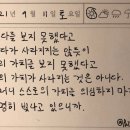 21년 9월 11일 토요일
다를 보지 못했다고
다가 사라지는 않듯이
의 가치를 보지 못했다고
의 가치가 사라지는 것은 아니다.
니 스스로의 가치를 의심하지 마
히 빛나고 있으니까.